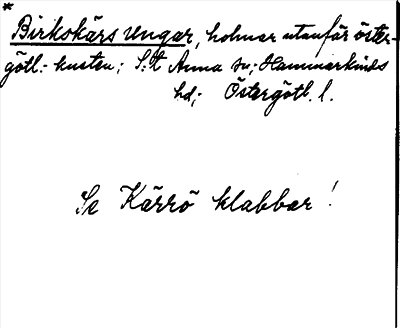 * Birkskärs ungar, holmar utanför öster-
götl.- kusten; S:t Anna sn; Hammarkinds
hd; Östergötl. l.
Se Kärrö klabbar!